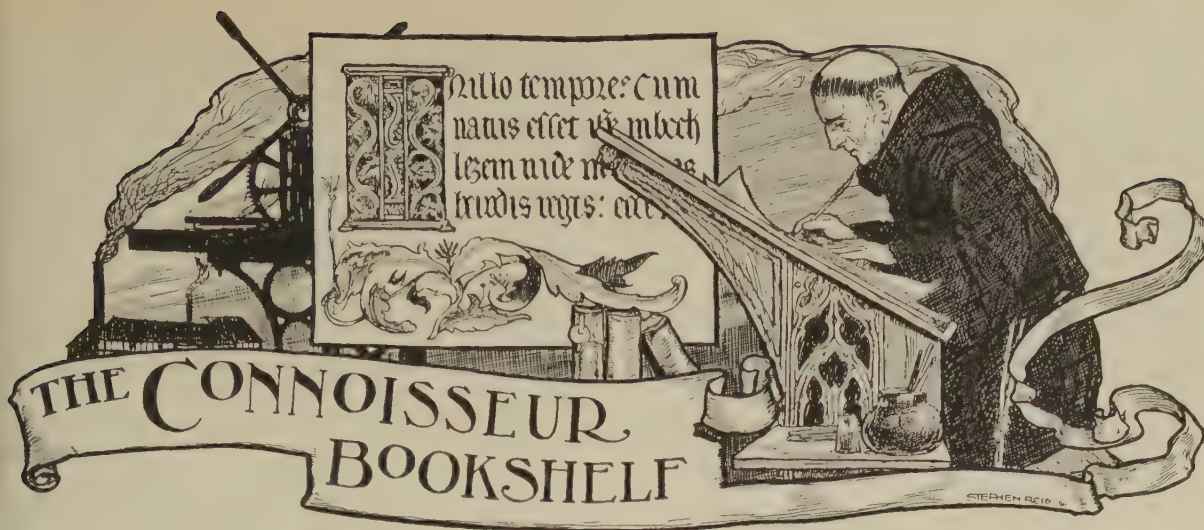 INillo tempore: Cum
natus esset inbeth
lezem iude
herodis regis:
THE CONNOISSEUR
BOOKSHELF
STEPHEN REID